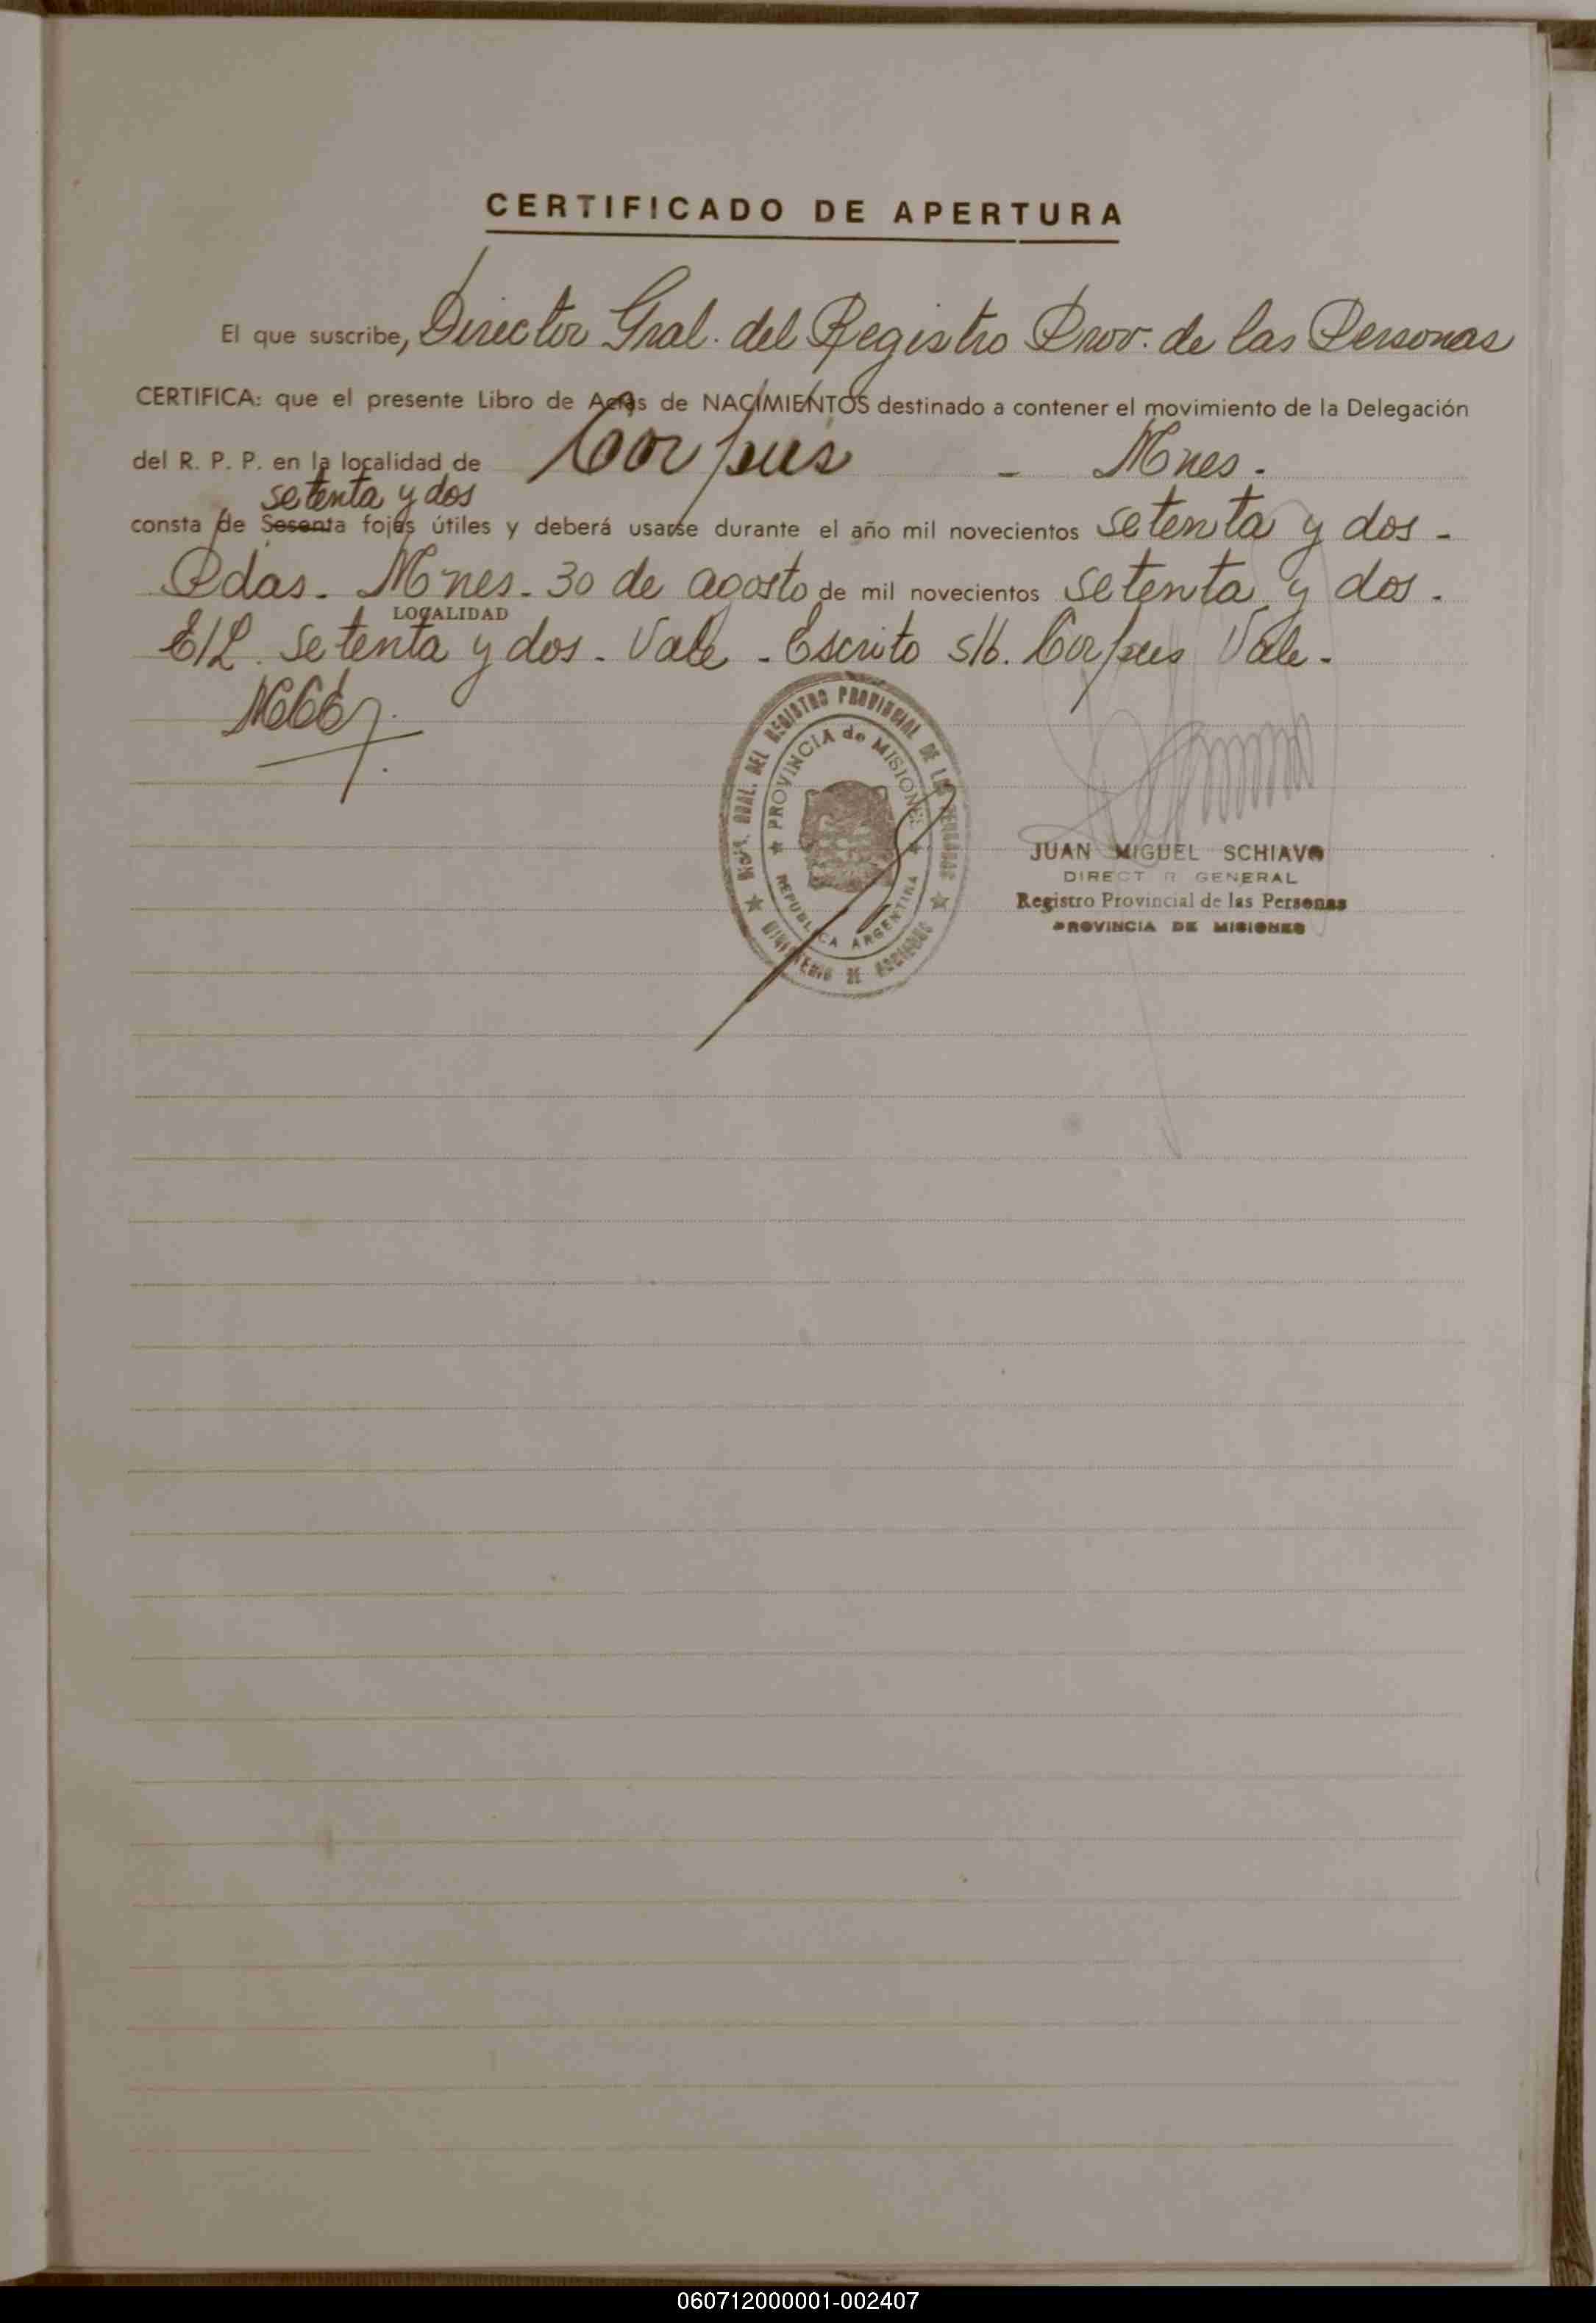 CERTIFICADO DE APERTURA
El que suscribe, Director Gral. del Registro Prov. de las Personas
CERTIFICA: que el presente Libro de Actas de NACIMIENTOS destinado a contener el movimiento de la Delegación
del R. P. P. en la localidad de Corpus - Mnes.
setenta y dos
consta de Sesenta fojas útiles y deberá usarse durante el año mil novecientos setenta y dos -
Pdas. Mnes. 30 de agosto de mil novecientos setenta y dos.
LOCALIDAD
E/L. setenta y dos - Vale - Escrito s/b. Corpus Vale -
DIREC. GRAL. DEL REGISTRO PROVINCIAL DE LAS PERSONAS
PROVINCIA de MISIONES
REPUBLICA ARGENTINA
MINISTERIO DE
JUAN MIGUEL SCHIAVO
DIRECT R GENERAL
Registro Provincial de las Personas
PROVINCIA DE MISIONES
060712000001-002407